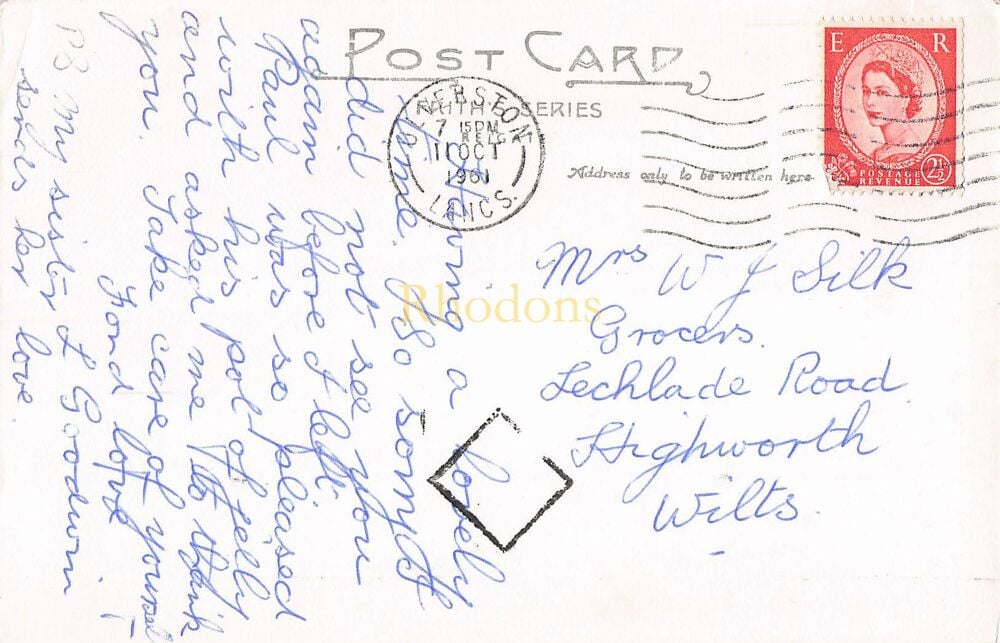 POST CARD
SERIES
Address only to be written here.
E R
POSTAGE
REVENUE
2½
ULVERSTON
7 15PM
11 OCT
1961
LANCS.
Rhodons
Mrs W J Silk
Grocers.
Lechlade Road
Highworth
Wilts.
Having a lovely
time. So sorry I
did not see you
again before I left
Paul was so pleased
with his pot of jelly
and asked me to thank
you. Take care of yourself
Fond love
I Goodwin
PS My sister
sends her love.